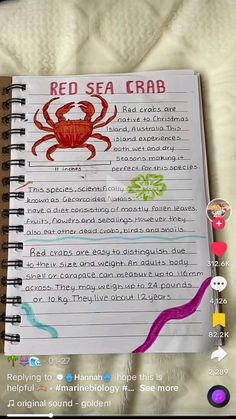 RED SEA CRAB
Red crabs are
native to Christmas
Island, Australia. This
island experiences
both wet and dry
seasons making it
perfect for this species
11 inches
This species, scientifically
known as Gecarcoidea Natalis
have a diet consisting of mostly fallen leaves
Fruits, flowers and seedlings. However they
also eat other dead crabs, birds and snails.
Red crabs are easy to distinguish due
to their size and weight. An adults body
shell or carapace can measure up to 116 mm
across. They may weigh up to 24 pounds
or 10 kg. They live about 12 years
312.6K
4,126
82.2K
2,289
1-27
Replying to Hannah hope this is
helpful #marinebiology #... See more
original sound - golden!